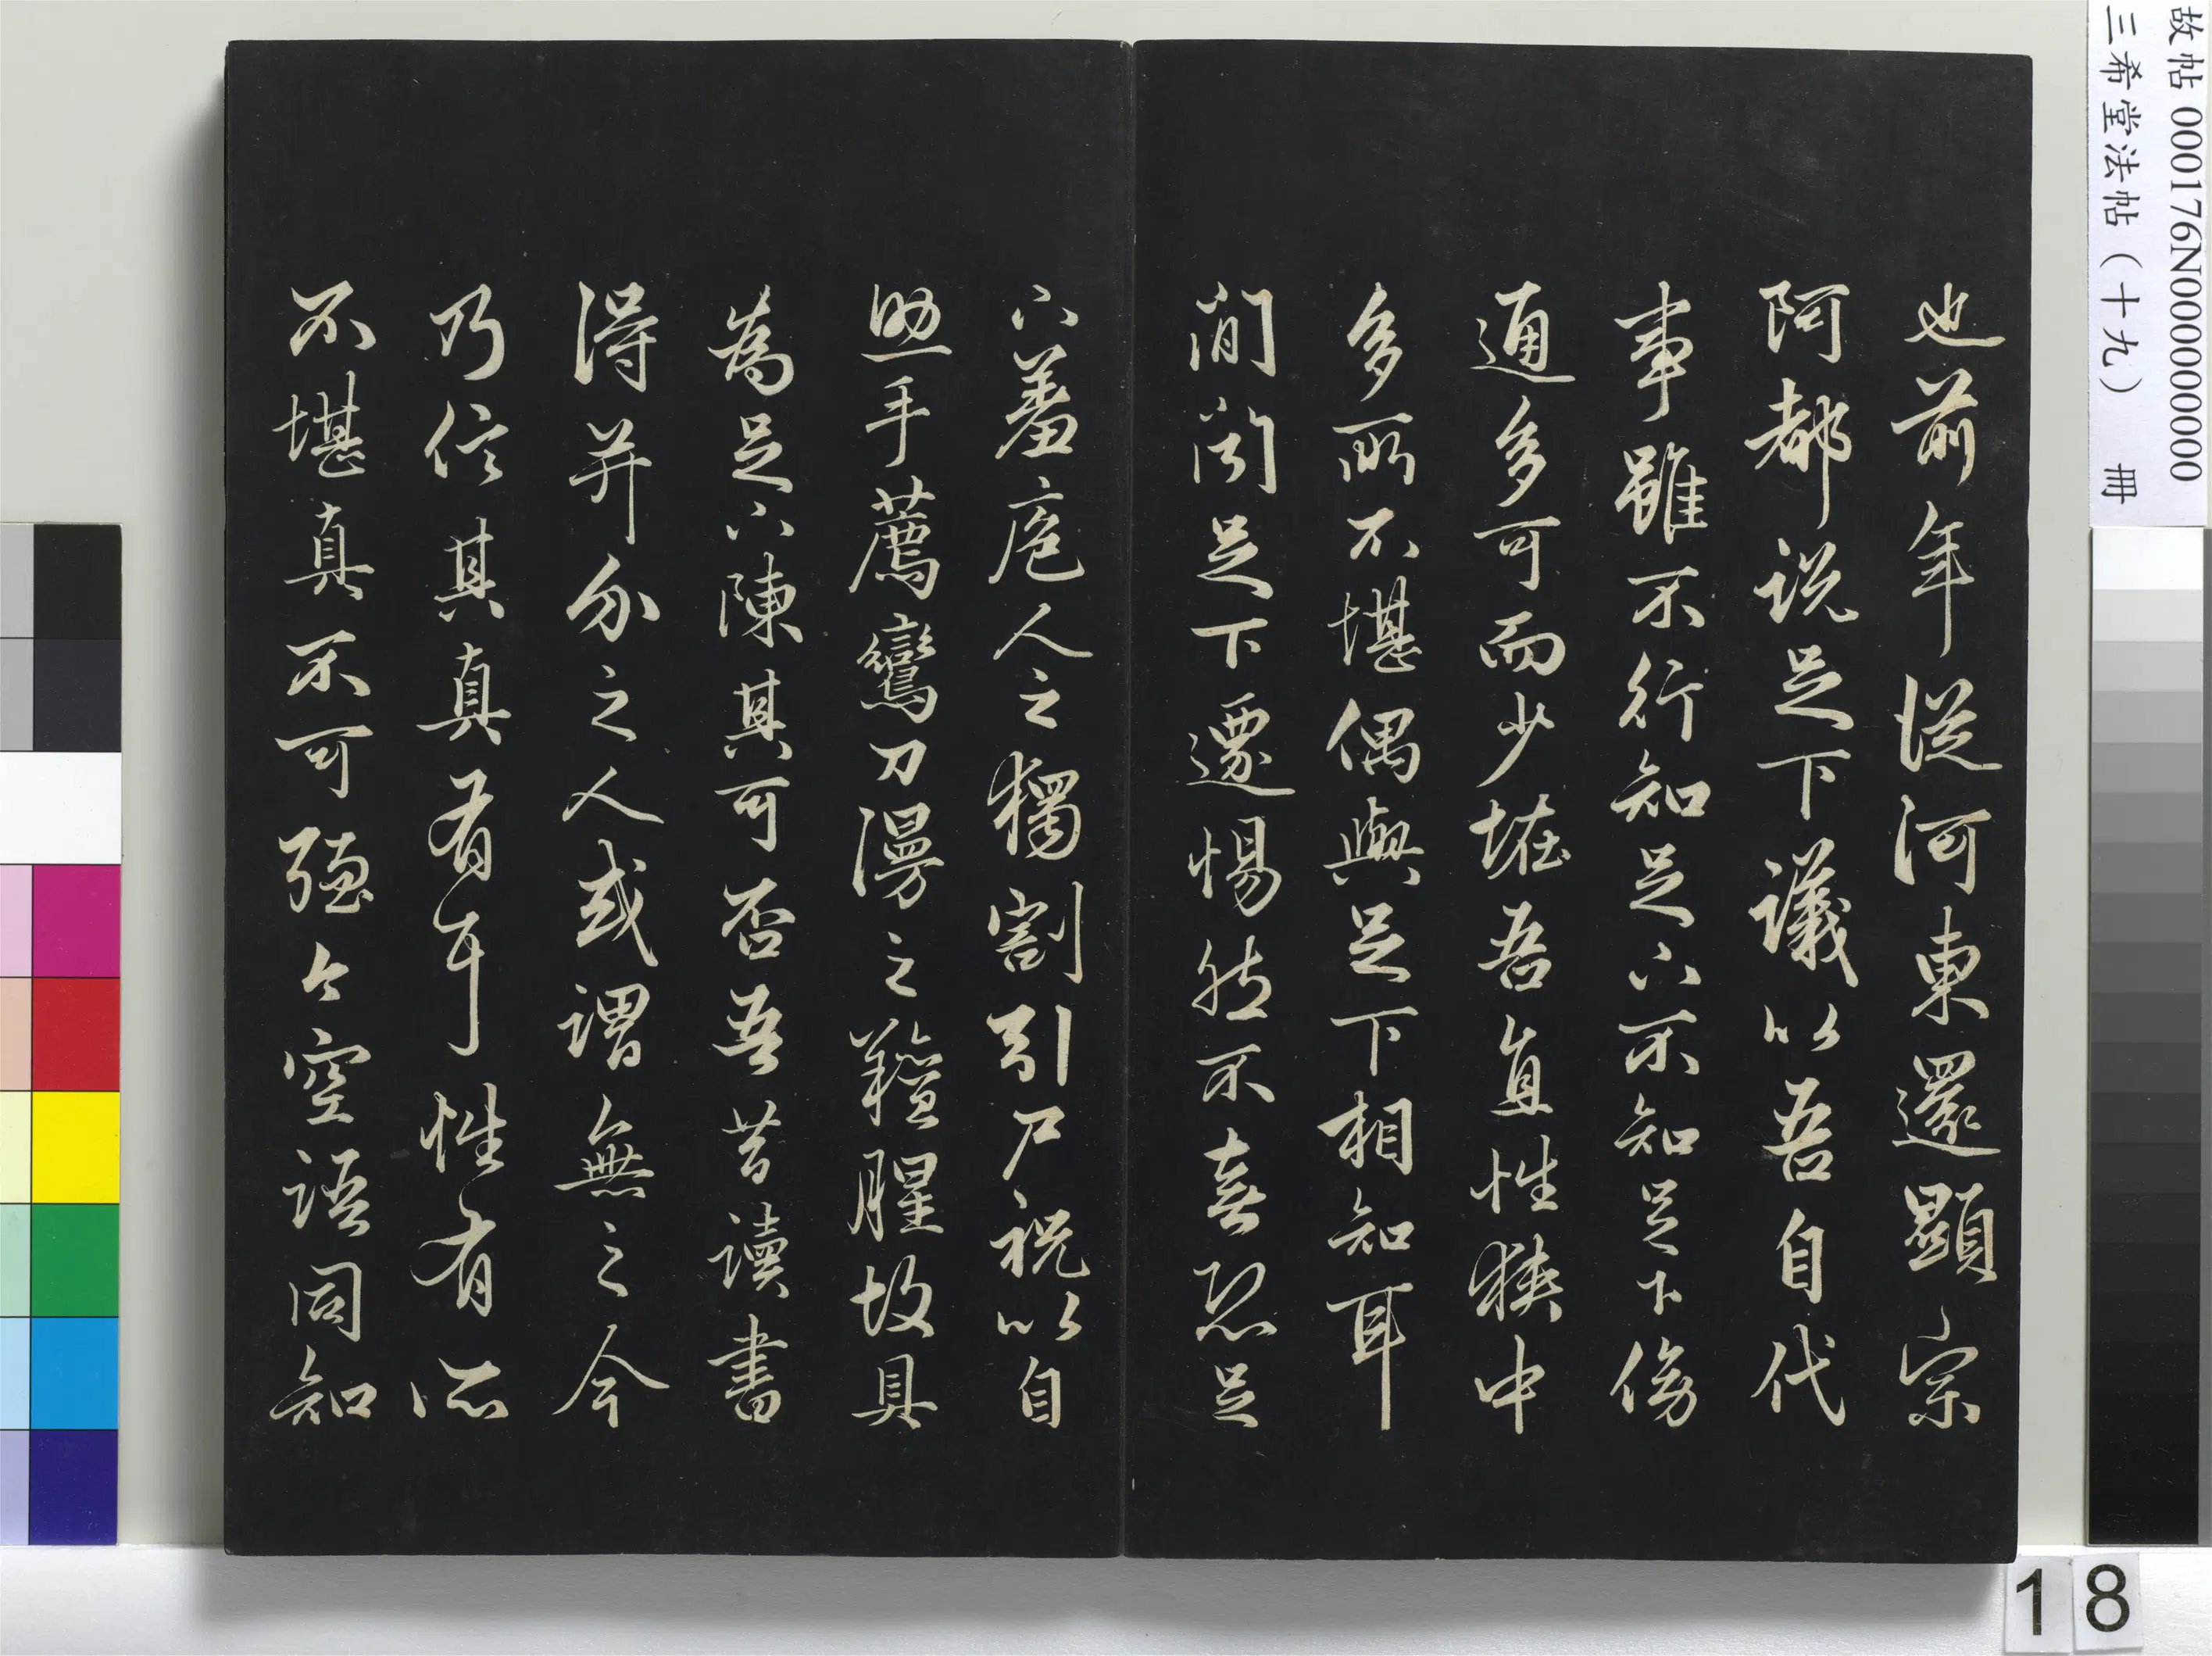 故帖 000176N000000000
三希堂法帖（十九） 冊
也前年從河東還顯宗
阿都說足下議以吾自代
事雖不行知足下不知足下傍
通多可而少怪吾直性狹中
多所不堪偶與足下相知耳
間聞足下遷惕然不喜恐足
下羞庖人之獨割引尸祝以自
助手薦鸞刀漫之羶腥故具
為足下陳其可否吾昔讀書
得并介之人或謂無之今
乃信其真有耳性有所
不堪真不可強今空語同知
18